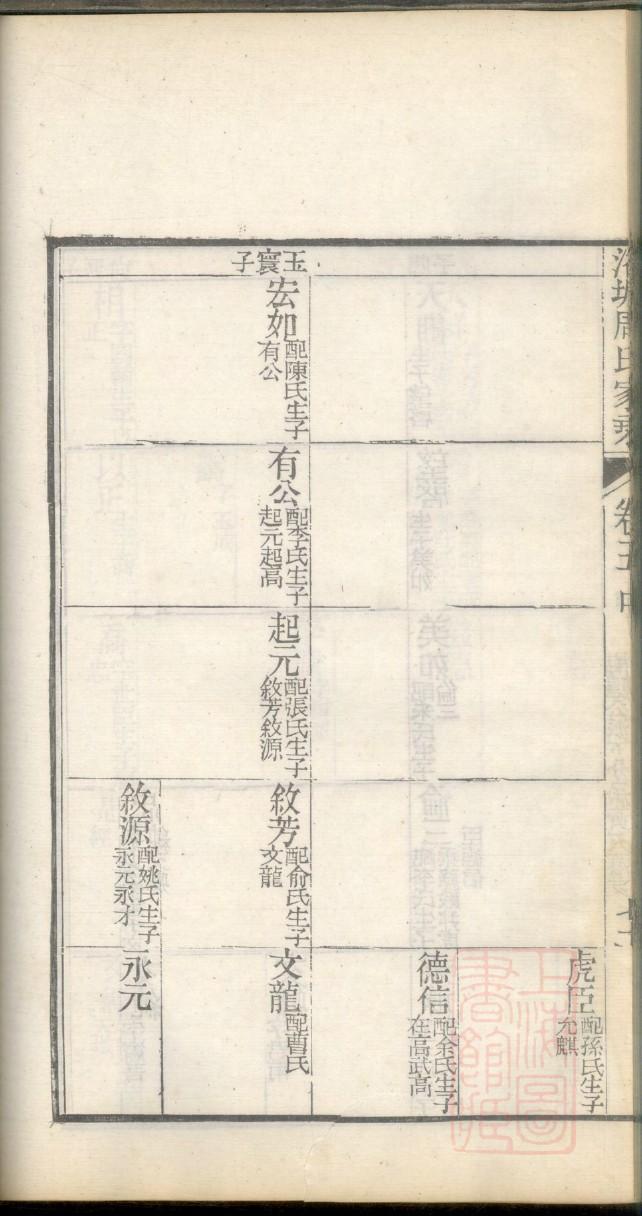 塘周氏家乘
卷五中
虎臣
配孫氏生子
允麒
德信
配余氏生子
在高武高
玉寰子
宏如
配陳氏生子
有公
有公
配李氏生子
起元起高
起元
配張氏生子
敘芳敘源
敘芳
配俞氏生子
文龍
文龍
配曹氏
敘源
配姚氏生子
永元永才
永元
上海圖書館藏